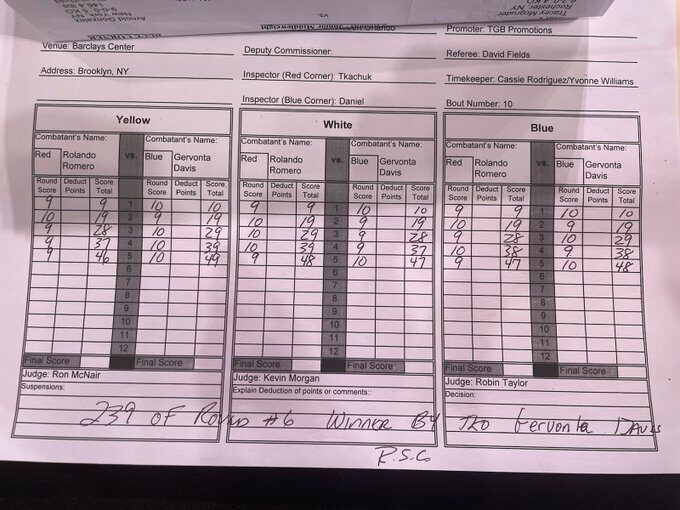 Tracey Mcgruder
Rochester, NY
New York, NY
vs
Promoter: TGB Promotions
Venue: Barclays Center Deputy Commissioner: Referee: David Fields
Address: Brooklyn, NY Inspector (Red Corner): Tkachuk Timekeeper: Cassie Rodriguez/Yvonne Williams
Inspector (Blue Corner): Daniel Bout Number: 10
Yellow White Blue
Combatant's Name: Combatant's Name: Combatant's Name: Combatant's Name: Combatant's Name: Combatant's Name:
Red Rolando Romero vs. Blue Gervonta Davis Red Rolando Romero vs. Blue Gervonta Davis Red Rolando Romero vs. Blue Gervonta Davis
Round Score Deduct Points Score Total Round Score Deduct Points Score Total Round Score Deduct Points Score Total Round Score Deduct Points Score Total Round Score Deduct Points Score Total Round Score Deduct Points Score Total
9 9 1 10 10 9 9 1 10 10 9 9 1 10 10
10 19 2 9 19 10 19 2 9 19 10 19 2 9 19
9 28 3 10 29 10 29 3 9 28 9 28 3 10 29
9 37 4 10 39 10 39 4 9 37 10 38 4 9 38
9 46 5 10 49 9 48 5 10 47 9 47 5 10 48
6 6 6
7 7 7
8 8 8
9 9 9
10 10 10
11 11 11
12 12 12
Final Score Final Score Final Score Final Score Final Score Final Score
Judge: Ron McNair Judge: Kevin Morgan Judge: Robin Taylor
Suspensions: Explain Deduction of points or comments:: Decision:
239 OF ROUND #6 WINNER BY TKO Gervonta DAVIS
R.S.C.